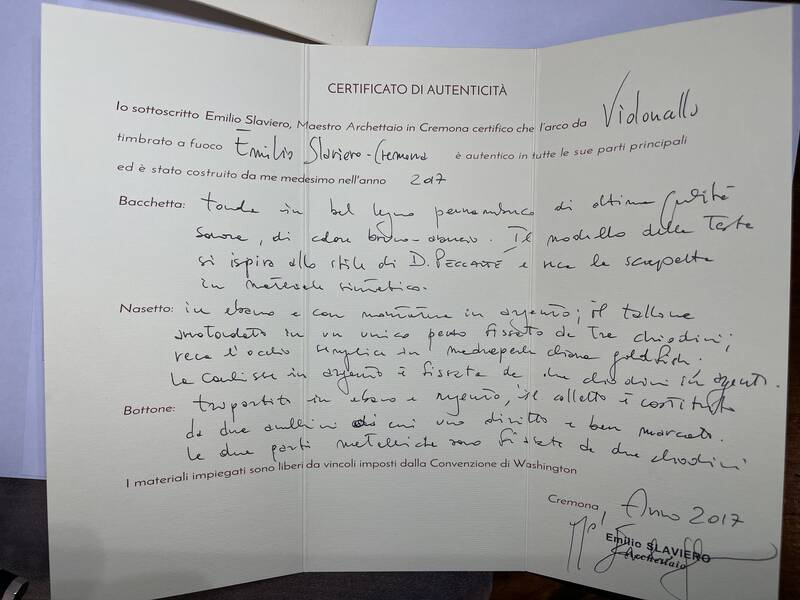 CERTIFICATO DI AUTENTICITÀ
Io sottoscritto Emilio Slaviero, Maestro Archettaio in Cremona certifico che l'arco da Violoncello
timbrato a fuoco Emilio Slaviero-Cremona è autentico in tutte le sue parti principali
ed è stato costruito da me medesimo nell'anno 2017
Bacchetta: tonda in bel legno pernambuco di ottima qualità
sonora, di colore bruno-arancio. Il modello della Testa
si ispira allo stile di D. PECCATTE e reca la scarpetta
in materiale sintetico.
Nasetto: in ebano e con montatura in argento; il tallone
arrotondato in un unico pezzo fissato da tre chiodini;
reca l'occhio semplice in madreperla chiara goldfish.
La coulisse in argento è fissata da due chiodini in argento.
Bottone: tripartito in ebano e argento, il colletto è costituito
da due anellini di cui uno diritto e ben marcato.
le due parti metalliche sono fissate da due chiodini
I materiali impiegati sono liberi da vincoli imposti dalla Convenzione di Washington
Cremona, Anno 2017
Emilio SLAVIERO
Archettaio